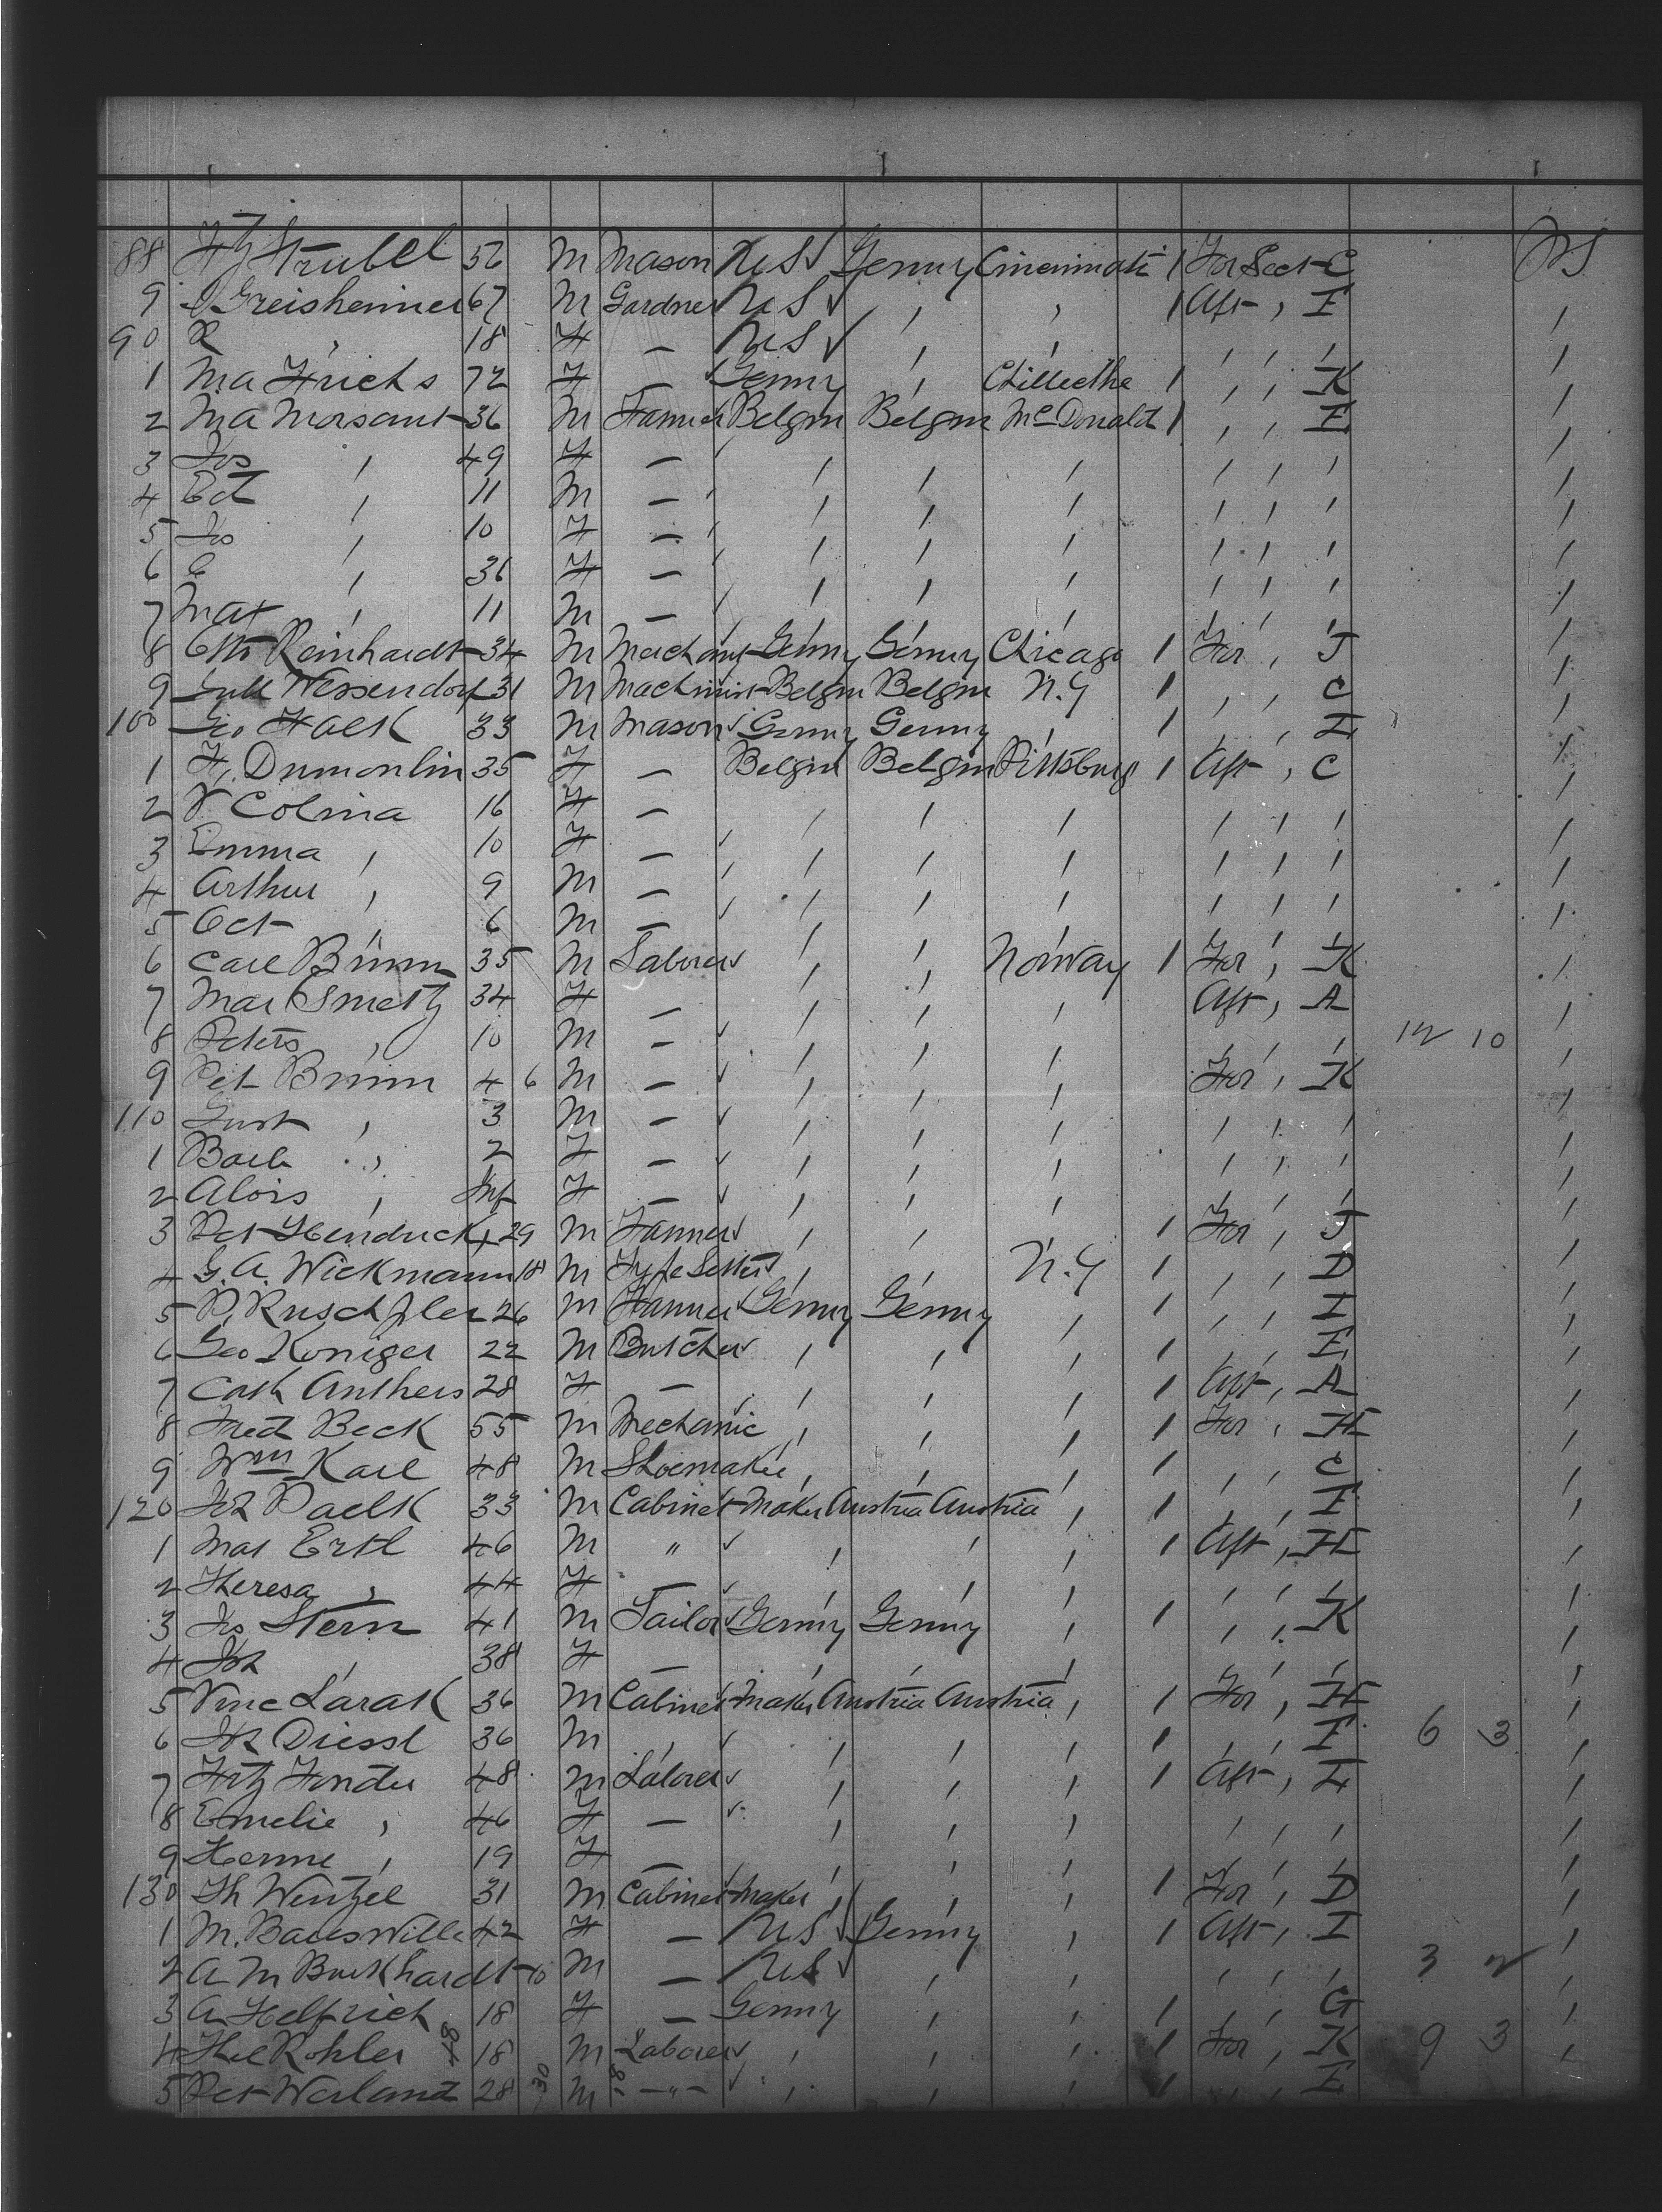 88 Ftz Strubel 56 M Mason U S ✓ Germy Cincinnati 1 For Sect C U S
9 J Greisheimer 67 M Gardner U S ✓ , , 1 Aft , E /
90 R , 18 F — U S ✓ , , , , , /
1 Ma Frichs 72 F — ✓ Germy , Chillecthe 1 , , K /
2 Ma Morsaut 36 M Farmer Belgm Belgm McDonald 1 , , E /
3 Jos , 49 F — , , , , , , /
4 Ed , 11 M — , , , , , , /
5 Jo , 10 F — , , , , , , /
6 C , 36 F — , , , , , , /
7 Mat , 11 M — , , , , , , /
8 Otto Reinhardt 34 M Merchant Germy Germy Chicago 1 For , J /
9 Wessendorf 31 M Machinist Belgm Belgm N.Y 1 , , C /
100 Geo Falk 33 M Mason ✓ Germy Germy , 1 , , I /
1 F. Dumonlin 35 F — Belgm Belgm Pittsburg 1 Aft , C /
2 V Colina 16 F — , , , , , , /
3 Emma , 10 F — ✓ , , , , , , /
4 Arthur , 9 M — , , , , , , /
5 Oct , 6 M — ✓ , , , , , , /
6 Carl Brimm 35 M Laborer ✓ , , Norway 1 For , K /
7 Mar Smetz 34 F — , , , Aft , A /
8 Peters , 10 M — ✓ , , , , , , 12 10 /
9 Pet Brimm 4 6 M — ✓ , , , For , K /
110 Gust , 3 M — ✓ , , , , , , /
1 Barb , 2 F — ✓ , , , , , , /
2 Alois , Inf F — ✓ , , , , , , /
3 Pet Hendrick 29 M Farmer ✓ , , 1 For , J /
4 G. A. Wickmann 18 M Type Setter ✓ , , N.Y 1 , , D /
5 P. Ruschfler 26 M Farmer ✓ Germy Germy , 1 , , I /
6 Geo Koniger 22 M Butcher ✓ , , , 1 , , E /
7 Cath Anthers 28 F — , , , 1 Aft , A /
8 Fred Beck 55 M Mechanic , , , 1 For , H /
9 Wm Karl 48 M Shoemaker , , , 1 , , C /
120 Jos Paelk 33 M Cabinet Maker Austria Austria , 1 , , E /
1 Mat Ertl 46 M " ✓ , , , 1 Aft , H /
2 Theresa , 44 F — ✓ , , , , , , /
3 Jos Stern 41 M Tailor ✓ Germy Germy , 1 , , K /
4 Jos , 38 F — , , , , , , /
5 Vinc Larak 36 M Cabinet Maker Austria Austria , 1 For , H /
6 Jos Diessl 36 M , ✓ , , , 1 , , E 6 3 /
7 Fritz 48 M Laborer ✓ , , , 1 Aft , I /
8 Emelie , 46 F — ✓ , , , , , , /
9 Hermi , 19 F — , , , , , , /
130 Th Wentzel 31 M Cabinet Maker , , , 1 For , D /
1 M. Bauswille 42 F — U S ✓ Germy , 1 Aft , I /
2 A M Burkhardt 10 M — U S ✓ , , , , , 3 2 /
3 A Helfrich 18 F — Germy , , 1 , , G /
4 Kohler 18 M Laborer ✓ , , , 1 For , K 9 3 /
5 Pet Werland 28 30 M — " — ✓ , , , 1 , , E /